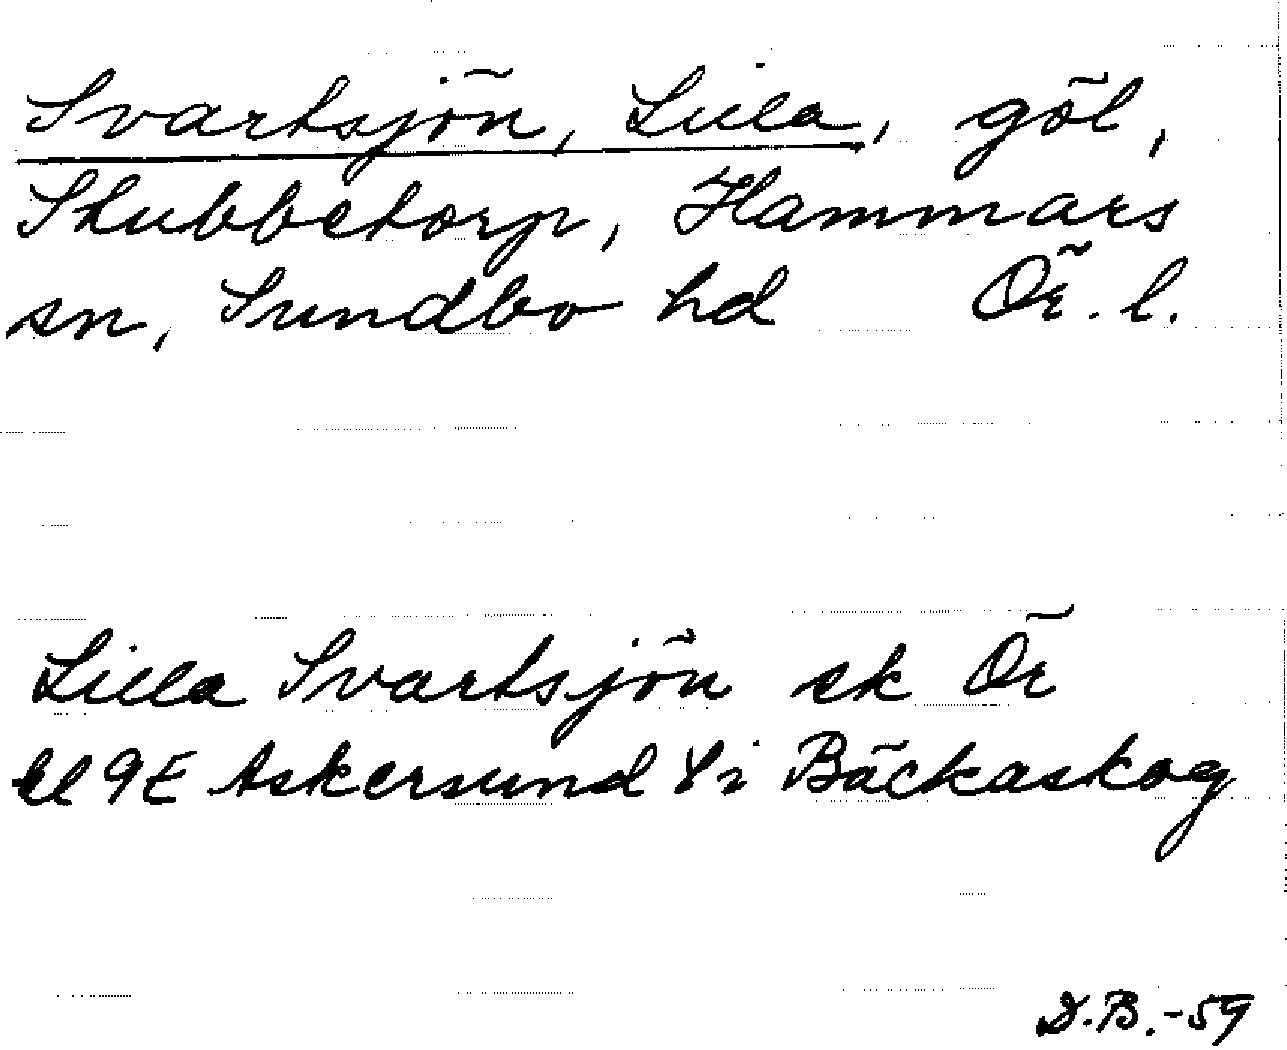 Svartsjön, Lilla, göl,
Stubbetorp, Hammars
sn, Sundbo hd Ör. l.
Lilla Svartsjön ek Ör
bl 9E Askersund 8i Bäckaskog
D.B.-59